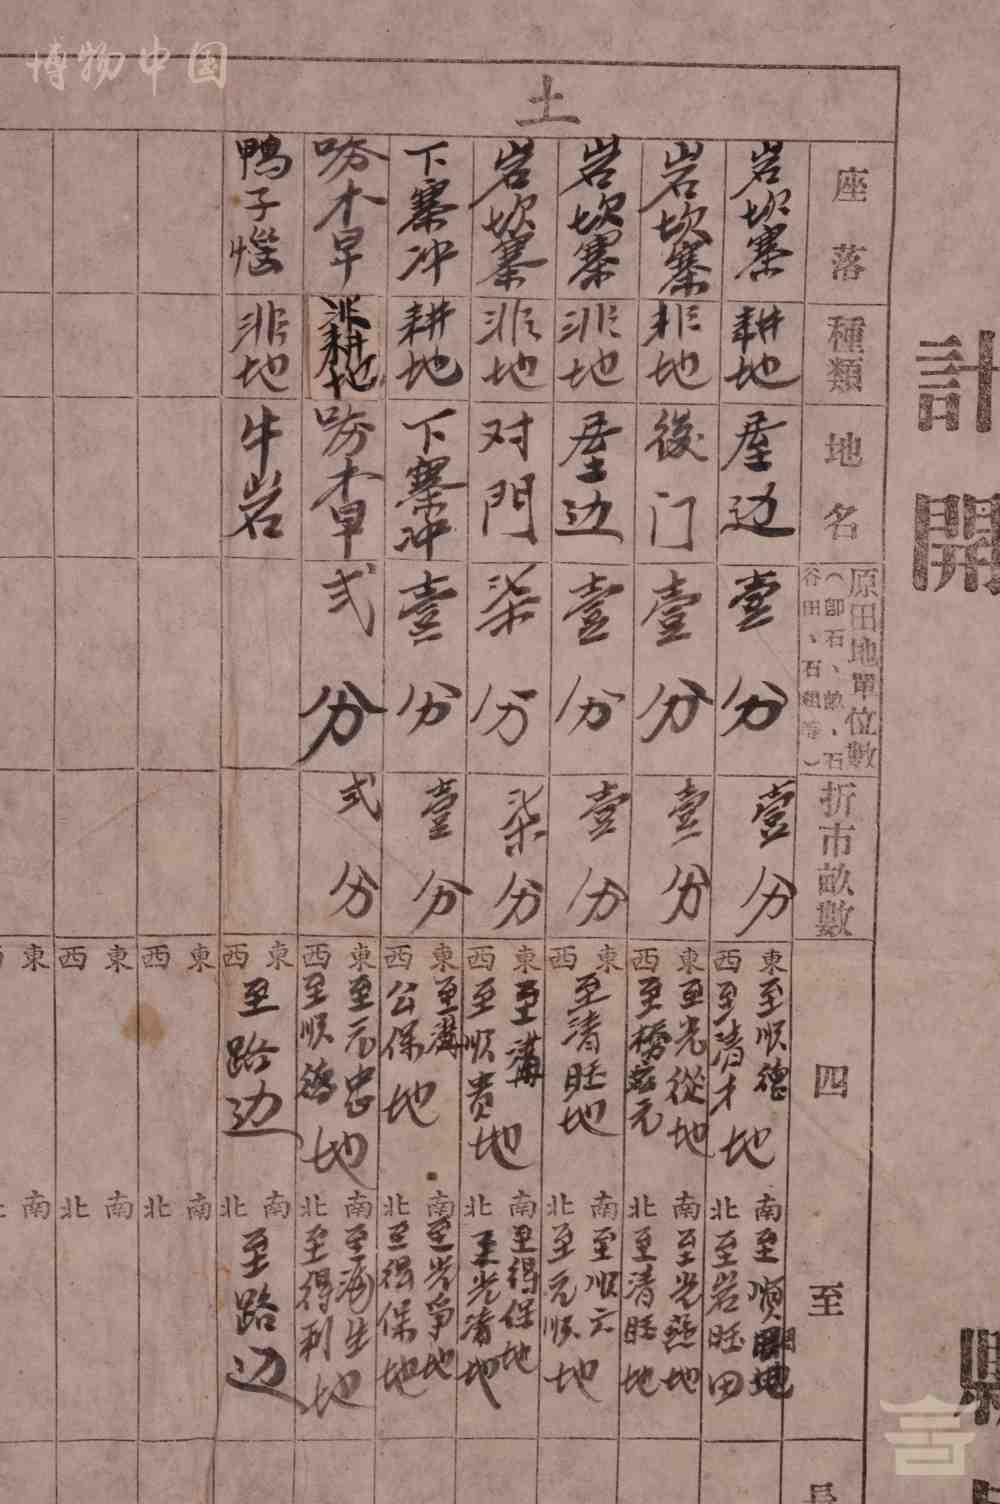 博物中国
計開
縣
土
座落
種類
地名
原田地單位數
（卽石、畝、石谷田、石租等）
折市畝數
四至
岩坎寨
耕地
屋边
壹分
壹分
東至順德
西至清才地
南至順開地
北至岩旺田
岩坎寨
非地
後门
壹分
壹分
東至光從地
西至元
南至光燕地
北至清旺地
岩坎寨
非地
屋边
壹分
壹分
東西至清旺地
南至順六
北至元順地
岩坎寨
非地
对門
柒分
柒分
東至溝
西至順贵地
南至得保地
北至光清地
下寨冲
耕地
下寨冲
壹分
壹分
東至溝
西公保地
南至光爭地
北至得保地
木早
耕地
木早
弍分
弍分
東至元忠地
西至順德
南至海生地
北至得利
鴨子
非地
牛岩
東西至路边
南北至路边
東西
南北
東西
南北
東
南